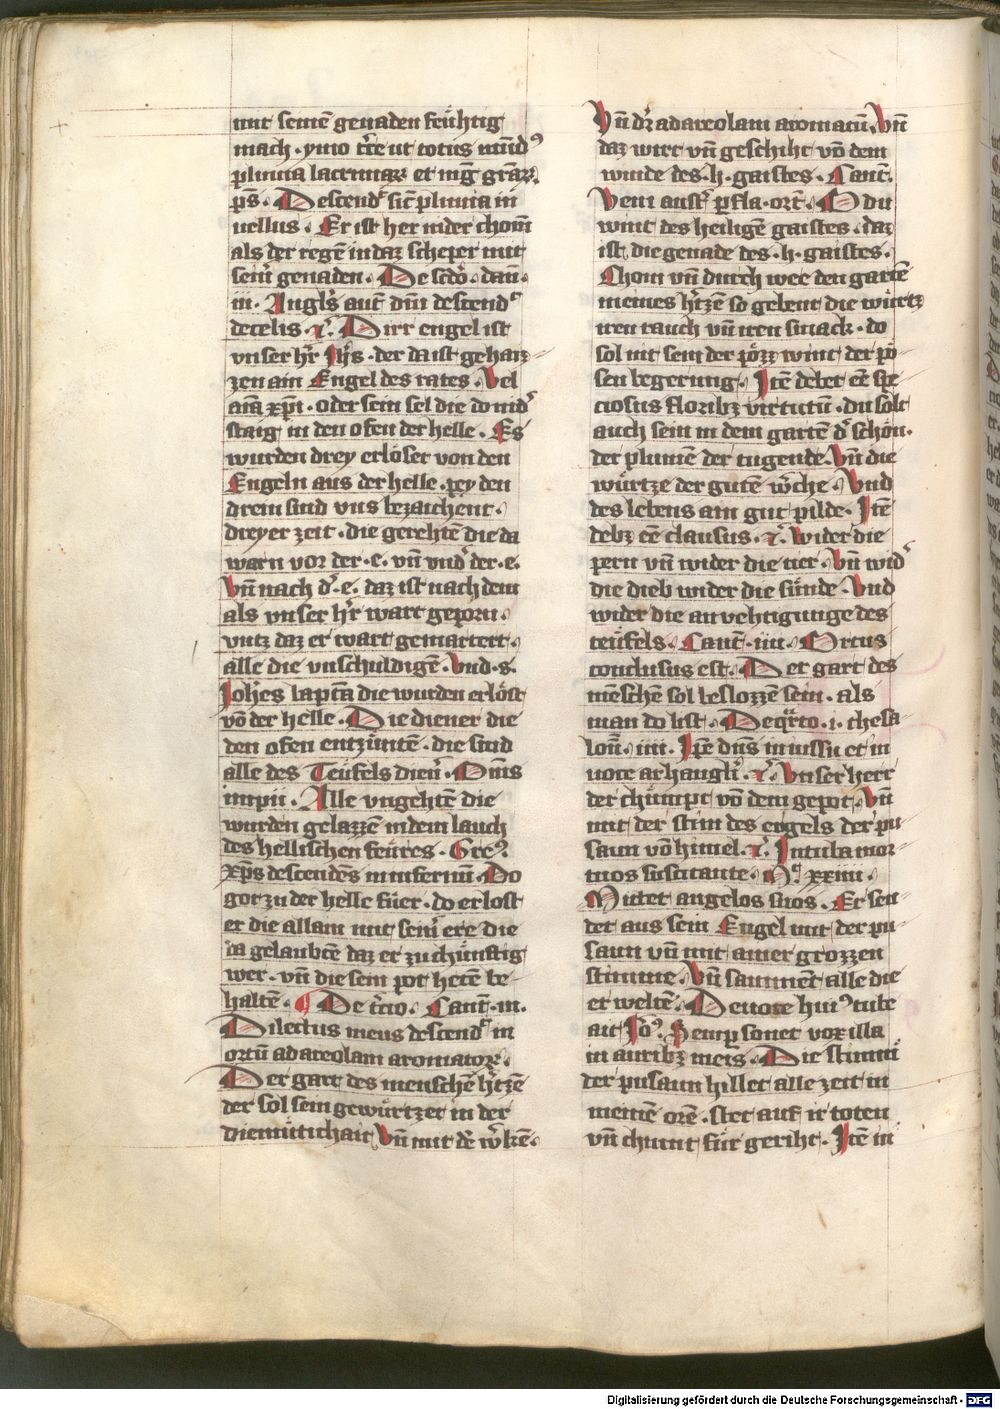 mit seinē genaden feuͤhtig
mach · ymo t̄re ut totus mūdꝰ
pluuia lacrimaꝝ et mg̅ grāꝝ.
ps̄ · Descendꝰ sic̄ pluuia in
uellus · Er ist her nider chom̄
als der regē in daz scheper mit
sein̄ genaden · De scd̄o · dan̄ ·
iii · Angl's aut̄ dn̄i descendꝰ
de celis · ⁊c̄ · Dirr engel ist
vnser hr̄ Jh̄s · der da ist gehaiz-
zen ain Engel des rates · Vel
aīa xp̄i · oder sein sel die do nidˢ
staig in den ofen der helle · Es
wurden drey erloͤset von den
Engeln aus der helle · pey den
drein sind vns bezaichent ·
dreyer zeit · die gerehtē die da
warn vor der · e · vn̄ vndˢ der · e ·
Vn̄ nach dˢ · e · daz ist nach dem
als vnser hr̄ wart geporn ·
vntz daz er wart gemartert ·
alle die vnschuldigē · Vnd · s ·
Joh̄es bapt̄a die wurden erloͤst
vō der helle · Die diener die
den ofen entzuͤntē · die sind
alle des Teufels dien̄ · Om̄s
impii · Alle vngehtē die
wurden gelazzē in dem lauch
des hellischen feuͤres · Greꝰ ·
Xp̄s descendēs in infernū · Do
got zu der helle fuͤer · do erlost
er die allain mit sein̄ ere die
da gelaubtē daz er zuchuͤnftig
wer · vn̄ die sein pot hetē be-
haltē · ¶ De t̄cio · Cant̄ · iii ·
Dilectus meus descendꝰ in
ortū ad areolam aromatoꝝ ·
Der gart des menschē hˢtzē
der sol sein gewuͤrtzet in der
diemuͤtichait Vn̄ mit dē wˢkē ·
Vn̄ dr̄ ad areolam aromatū · Vn̄
daz wirt vn̄ geschiht vō dem
winde des · h · gaistes · Cant̄ ·
Veni austˢ ꝑfla · ort̄ · O du
wint des heiligē gaistes · daz
ist die genade des · h · gaistes ·
Chom vn̄ durch wee den gartē
meines hˢtzē so gebent die wuͤrtz
iren rauch vn̄ iren smack · do
sol nit sein der poͤzz wint der poͤ-
sen begerung · Itē debet eē spe-
ciosus floribꝫ virtutū · du solt
auch sein in dem gartē dˢ schoͤn ·
der plumē der tugende · Vn̄ die
wuͤrtze der gutē wˢche · Vnd
des lebens ain gut pilde · Itē
debꝫ eē clausus · ⁊c̄ · Wider die
pern vn̄ wider die tier · Vn̄ widˢ
die dieb wider die suͤnde · Vnd
wider die anvehtigunge des
teuͤfels · Cant̄ · iiii · Ortus
conclusus est · Der gart des
mēschē sol beslozzē sein · als
man do list · De q̄rto · i · thesa-
lon̄ · iiii · Ip̄e dn̄s in iussu et in
uoce archangl'i · ⁊c̄ · Vnser herr
der chuͤmpt vō dem gepot · Vn̄
mit der stim des engels der pu-
saun vō himel · ⁊c̄ · In tuba mor-
tuos suscitante · Mꝰ xxiiii ·
Mittet angelos suos · Er sen-
det aus sein Engel mit der pu-
saun vn̄ mit ainer grozzen
stimme · Vn̄ samment alle die
er weltē · De uoce huiꝰ tube
ait Joꝰ · Semꝑ sonet vox illa
in auribꝫ meis · Die stimm
der pusaun hillet alle zeit in
meinē orē · stet auf ir toten
vn̄ chumt fuͤr geriht · Itē in
Digitalisierung gefördert durch die Deutsche Forschungsgemeinschaft - DFG